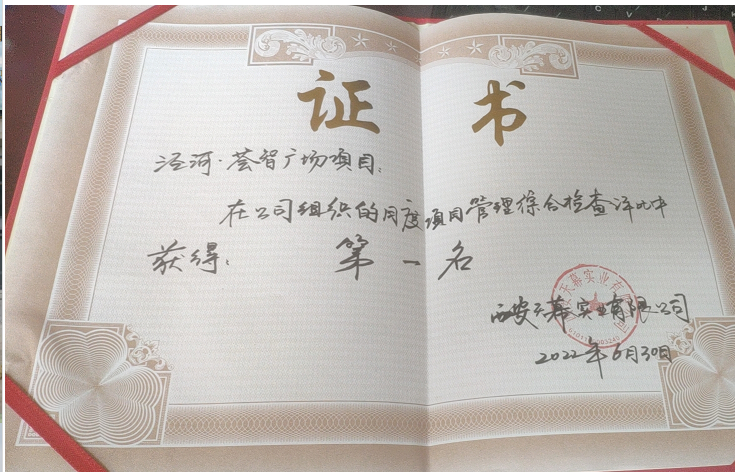 证 书
泾河·荟智广场项目:
在公司组织的月度项目管理综合检查评比中
获得: 第一名
西安天幕实业有限公司
2022年6月30日